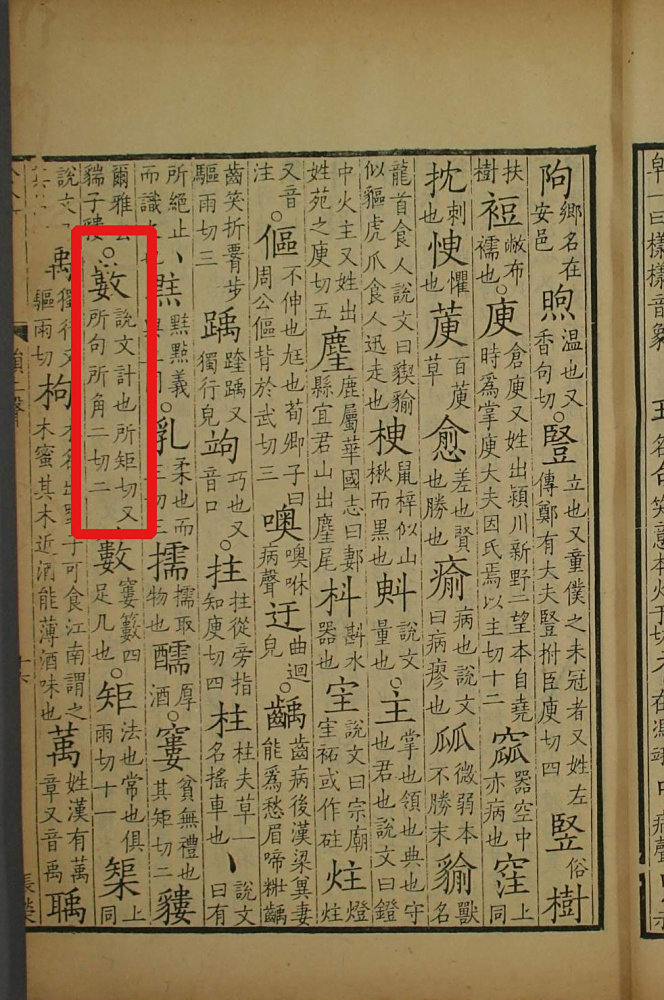 鄉名在安邑煦温也又香句切○豎立也又童僕之未冠者又姓左傳鄭有大夫豎拊臣庾切四竪俗樹
扶樹裋敝布襦也○庾倉庾又姓出潁川新野二望本自堯時爲掌庾大夫因氏焉以主切十二窳器空中亦病也上同
抌刺也懼也百草愈差也賢也勝也瘉病也說文曰病瘳也㼌微弱本不勝末貐獸名
龍首食人說文曰猰貐似貙虎爪食人迅走也楰鼠梓似山楸而黑也斞說文量也○主掌也領也典也守也君也說文曰鐙
中火主又姓出姓苑之庾切五麈鹿屬華國志曰郪縣宜君山出麈尾枓㪺水器也宔說文曰宗廟宔祏或作砫炷燈炷
又音注○傴不伸也尪也荀卿子曰周公傴背於武切三噢噢咻病聲迂曲迴皃○齲齒病後漢梁兾妻能爲愁眉啼粧齲
齒笑折𦝫步驅雨切三踽跬踽又獨行皃竘巧也又音口○拄拄從旁指知庾切四柱柱夫草一名搖車也丶說文曰有
所絕止而識之也丶點點義與上同○乳柔也而主切三擩擩取物也醹厚酒○窶貧無禮也其矩切二貗
爾雅云貒子貗○數說文計也所矩切又所句所角二切二籔窶籔四足几也○矩法也常也俱雨切十一榘上同
說文獨行又驅雨切枸木名出蜀子可食江南謂之木蜜其木近酒能薄酒味也萭姓漢有萭章又音禹聥